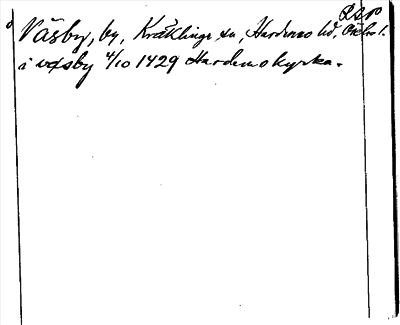 RAP
Väsby, by, Kräklinge sn, Hardemo hd, Örebro l.
i væsby 4/10 1429 Hardemo kyrka.